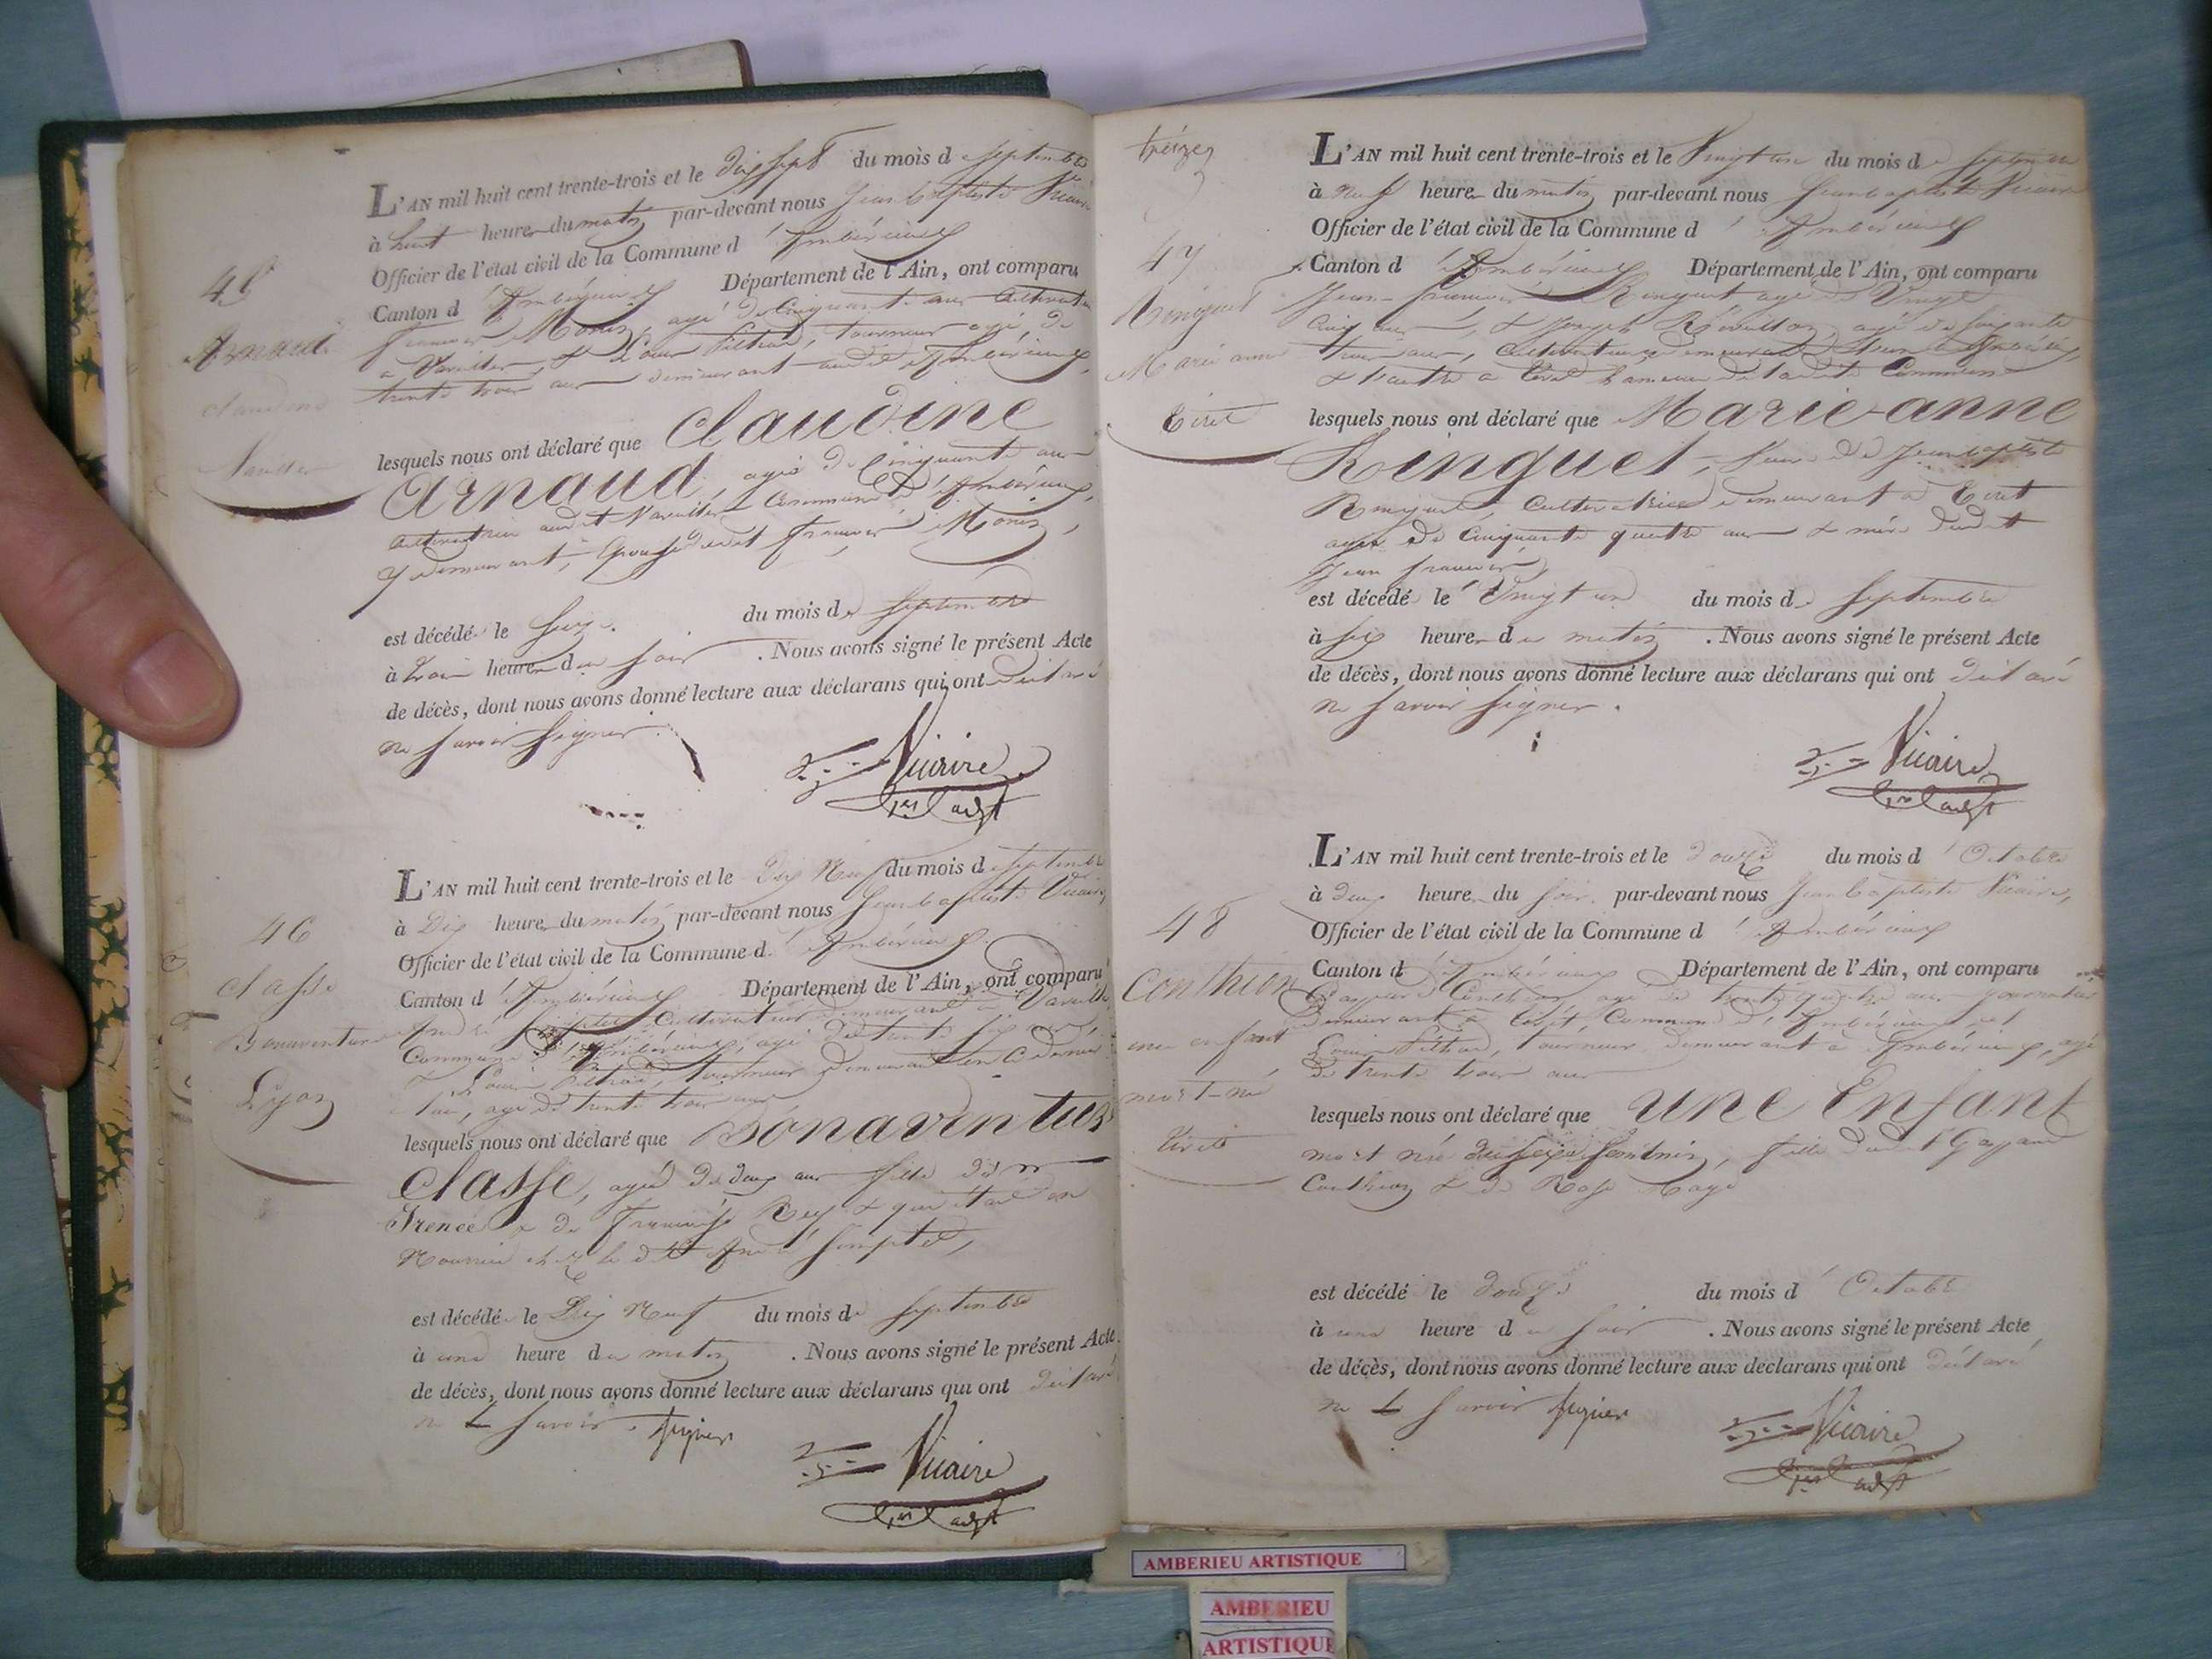 45
Arnaud
claudine
Vareilles
L'AN mil huit cent trente-trois et le dix sept du mois de septembre
à huit heures du matin par-devant nous Jean baptiste Vicaire
Officier de l'état civil de la Commune d'Ambérieux
Canton d'Ambérieux Département de l'Ain, ont comparu
françois Monin, agé de Cinquante ans Cultivateur
à Vareilles, & Louis tourneur agé de
trente trois ans demeurant audit Ambérieux,
lesquels nous ont déclaré que Claudine
Arnaud, agée de Cinquante ans
audit Vareilles Commune d'Ambérieux,
y demeurant, Epouse dudit françois Monin,
est décédée le seize du mois de septembre
à trois heures du soir . Nous avons signé le présent Acte
de décès, dont nous avons donné lecture aux déclarans qui ont déclaré
ne savoir signer.
Vicaire
46
classe
Bonaventure
Lyon
L'AN mil huit cent trente-trois et le Dix Neuf du mois de septembre
à Dix heures du matin par-devant nous Jean baptiste Vicaire,
Officier de l'état civil de la Commune d'Ambérieux
Canton d'Ambérieux Département de l'Ain, ont comparu
André cultivateur demeurant à Vareilles
Commune d'Ambérieux, agé de trente six ans,
& Louis tourneur demeurant en ce dernier
lieu, agé de trente trois ans
lesquels nous ont déclaré que Bonaventure
Classe, agée de deux ans fille de
Irenée & de Françoise Rey & qui était en
Nourrice chez le dit André
est décédée le Dix Neuf du mois de septembre
à une heure du matin . Nous avons signé le présent Acte
de décès, dont nous avons donné lecture aux déclarans qui ont déclaré
ne savoir signer
Vicaire
treize
47
Ringuet
Marie anne
Tiret
L'AN mil huit cent trente-trois et le Vingt un du mois de septembre
à Neuf heures du matin par-devant nous Jean baptiste Vicaire
Officier de l'état civil de la Commune d'Ambérieux
Canton d'Ambérieux Département de l'Ain, ont comparu
Jean françois Ringuet, agé de Vingt
Cinq ans, & Joseph agé de soixante
trois ans, Cultivateurs demeurant l'un à Ambérieux,
& l'autre à Tiret hameau de ladite Commune
lesquels nous ont déclaré que Marie-anne
Ringuet, de Jean baptiste
Ringuet, Cultivatrice demeurant à Tiret
agée de Cinquante quatre ans & mère dudit
Jean françois,
est décédée le Vingt un du mois de septembre
à six heures du matin . Nous avons signé le présent Acte
de décès, dont nous avons donné lecture aux déclarans qui ont déclaré
ne savoir signer.
Vicaire
48
Conthion
une enfant
mort-né
Tiret
L'AN mil huit cent trente-trois et le douze du mois d'Octobre
à deux heures du soir par-devant nous Jean baptiste Vicaire,
Officier de l'état civil de la Commune d'Ambérieux
Canton d'Ambérieux Département de l'Ain, ont comparu
Gaspard Conthion, agé de trente quatre ans
demeurant à Tiret, Commune d'Ambérieux, et
Louis tourneur demeurant à Ambérieux, agé
de trente trois ans
lesquels nous ont déclaré que une Enfant
mort né du sexe féminin, fille dudit Gaspard
Conthion & de Rose
est décédé le douze du mois d'Octobre
à une heure du soir . Nous avons signé le présent Acte
de décès, dont nous avons donné lecture aux déclarans qui ont déclaré
ne savoir signer
Vicaire
AMBERIEU ARTISTIQUE
AMBERIEU
ARTISTIQUE